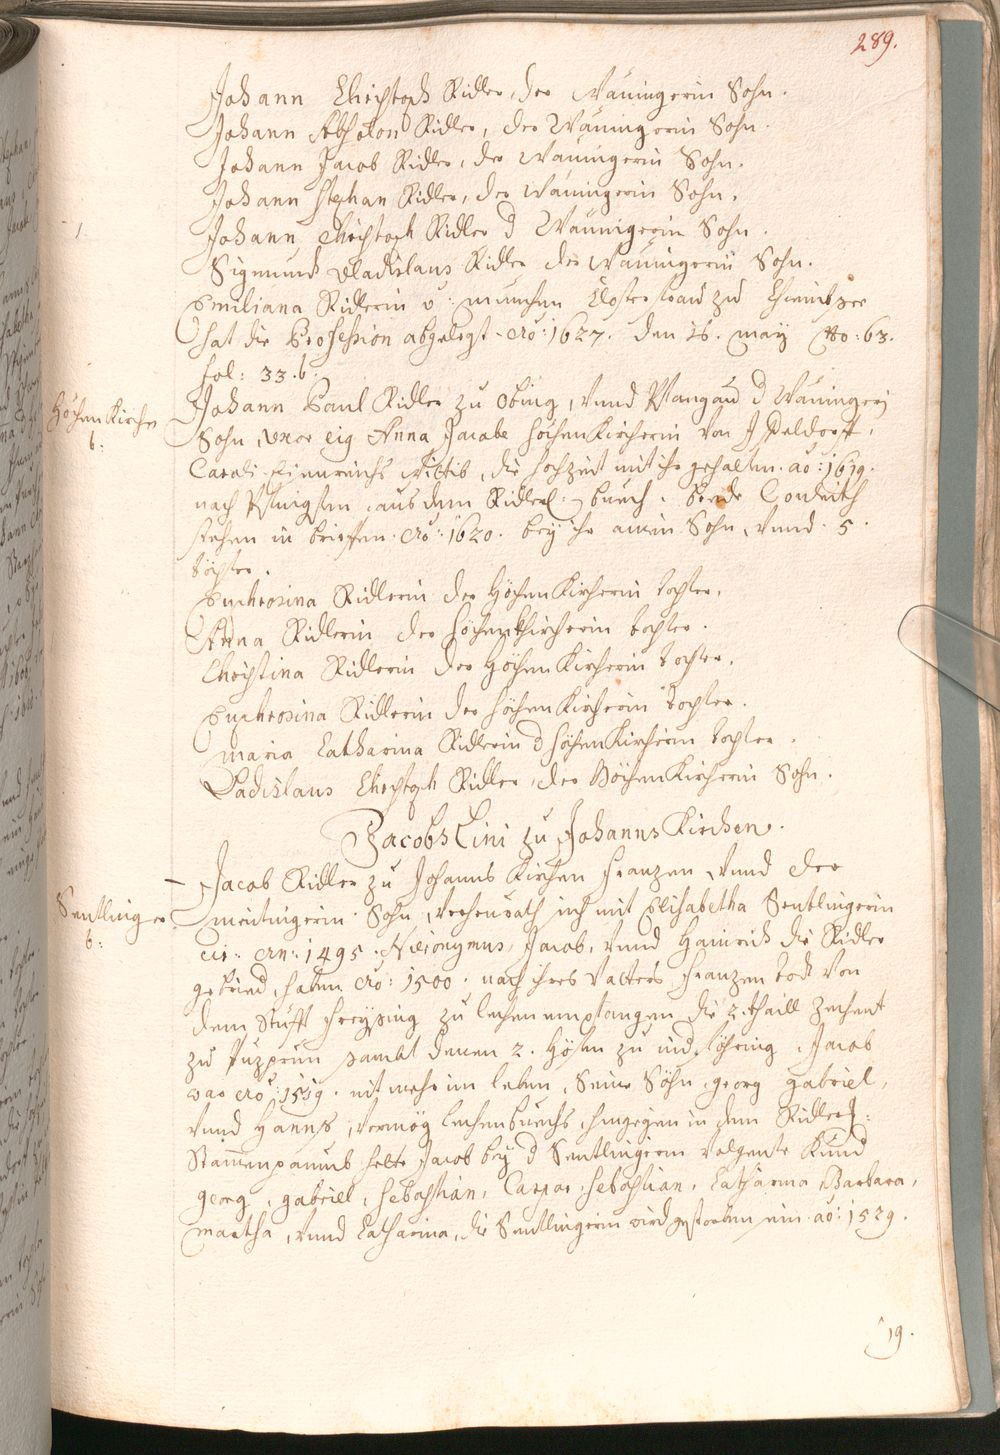 289.
Johann Christoph Ridler, der Mäuingerin Sohn.
Johann Absolon Ridler, der Mäuingerin Sohn.
Johann Jacob Ridler, der Mäuingerin Sohn.
Johann Stephan Ridler, der Mäuingerin Sohn.
Johann Christoph Ridler d Mäuingerin Sohn.
Sigmundt Vladislaus Ridler der Mäuingerin Sohn.
Emiliana Ridlerin v: München Closter frau zu
hat die Profession abgelegt ao: 1627. den 16. May No: 63.
fol: 33.b.
Höchen Kircher
b:
Johann Paul Ridler zu Obing, vnnd Mangau d Mäuingerin
Sohn, vxor eig Anna Jacobe HöchenKircherin von Ispeldorff,
Caroli Wittib, die hochzeit mit ihr gehalten. ao: 1619.
nach Pfingsten, aus dem Ridler: buech. beede Conleith
stehen in brieffen. ao: 1620. bey ihr ainen Sohn, vnnd. 5.
töchter.
Euphrosina Ridlerin der HöchenKircherin tochter.
Anna Ridlerin der höchenkhircherin tochter.
Christina Ridlerin der HöchenKircherin tochter.
Euphrosina Ridlerin der höchenKircherin tochter.
Maria Catharina Ridlerin d höchenKircherin tochter.
Ladislaus Christoph Ridler, der HöchenKircherin Sohn.
Jacobs Lini zu Johanns Kirchen.
Sentlinger
b:
Jacob Ridler zu Johanns Kirchen Franzen vnnd der
Sohn, verheurath sich mit Elisabetha Sentlingerin
cir: an: 1495. Hieronymus, Jacob, vnnd Hainrich die Ridler
gebried. haben ao: 1500. nach ihres Vatters Franzen todt von
dem Stüfft Freysing zu lechen empfangen die 2. thaill Zechent
zu Puzprun sambt denen 2. höfen zu nid. föhring, Jacob
war ao: 1519. nit mehr im leben, Seine Söhn, Georg Gabriel,
vnnd Hanns, vermög lechenbuechs, hingegen in dem Ridler:
Stammenpaumb hette Jacob bey d Sentlingerin volgente Kind
Georg, Gabriel, Sebastian, Caspar Sebastian, Catharina Barbara,
Martha, vnnd Catharina, die Sentlingerin wird gestorben sein. ao: 1529.
19.